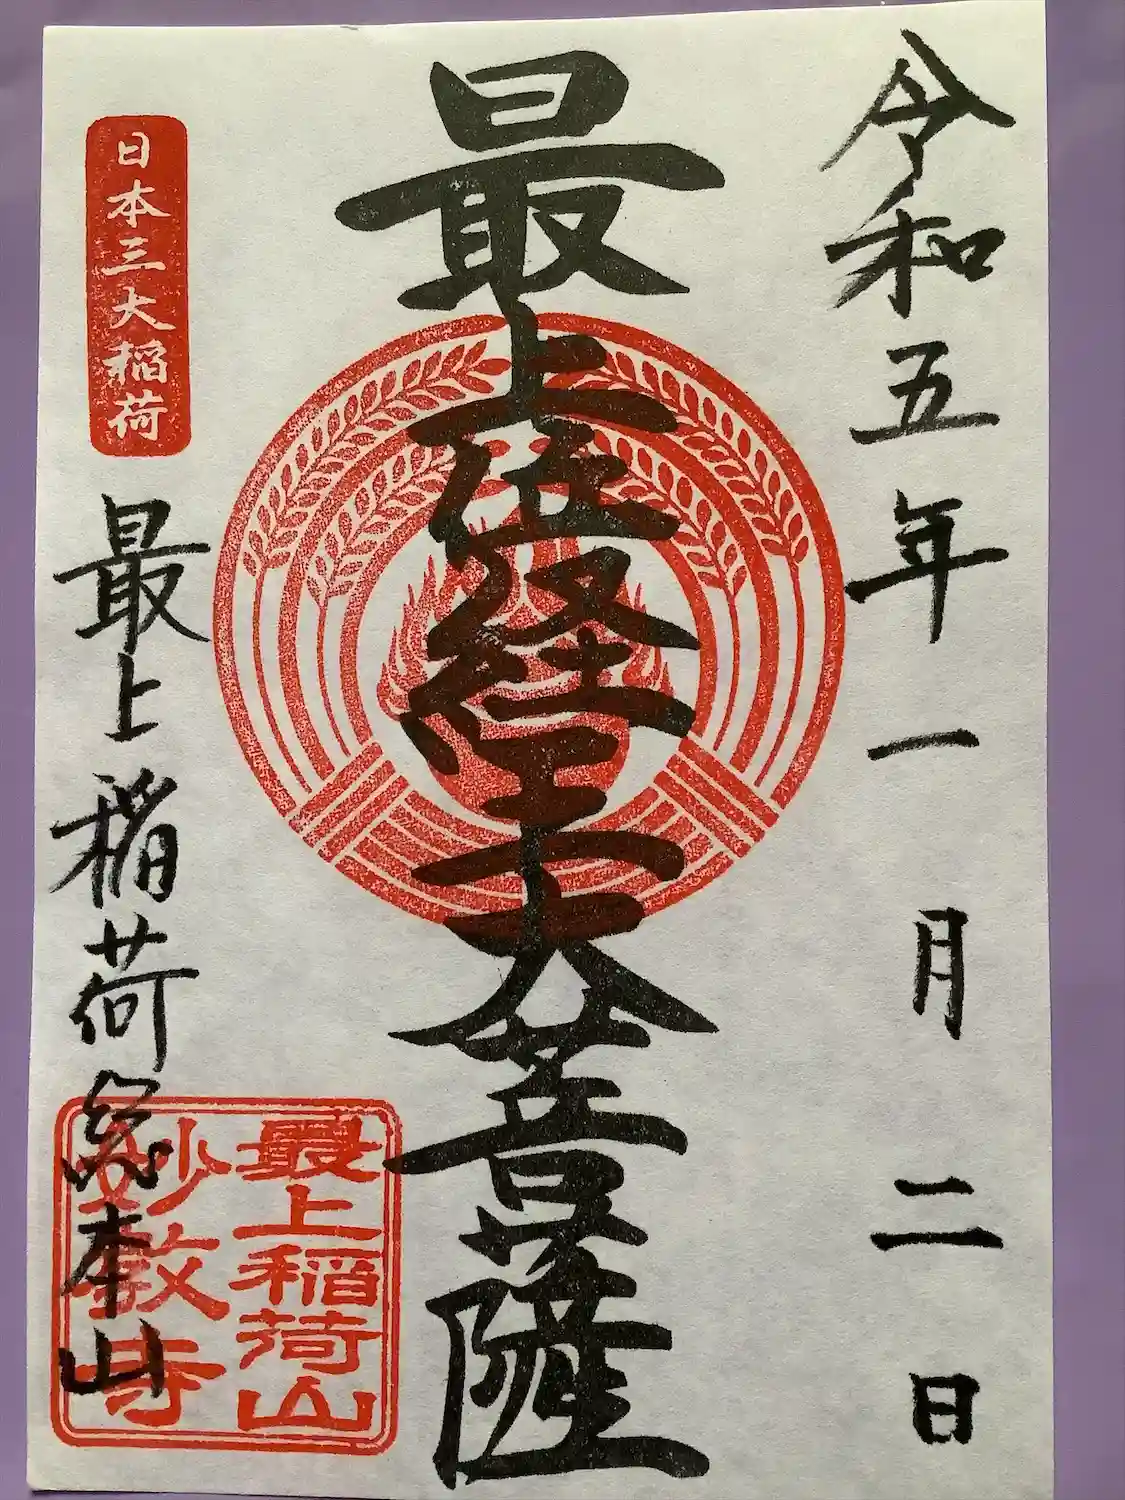 令和五年一月二日
最上位経王大菩薩
日本三大稲荷
最上稲荷総本山
最上稲荷山
妙教寺